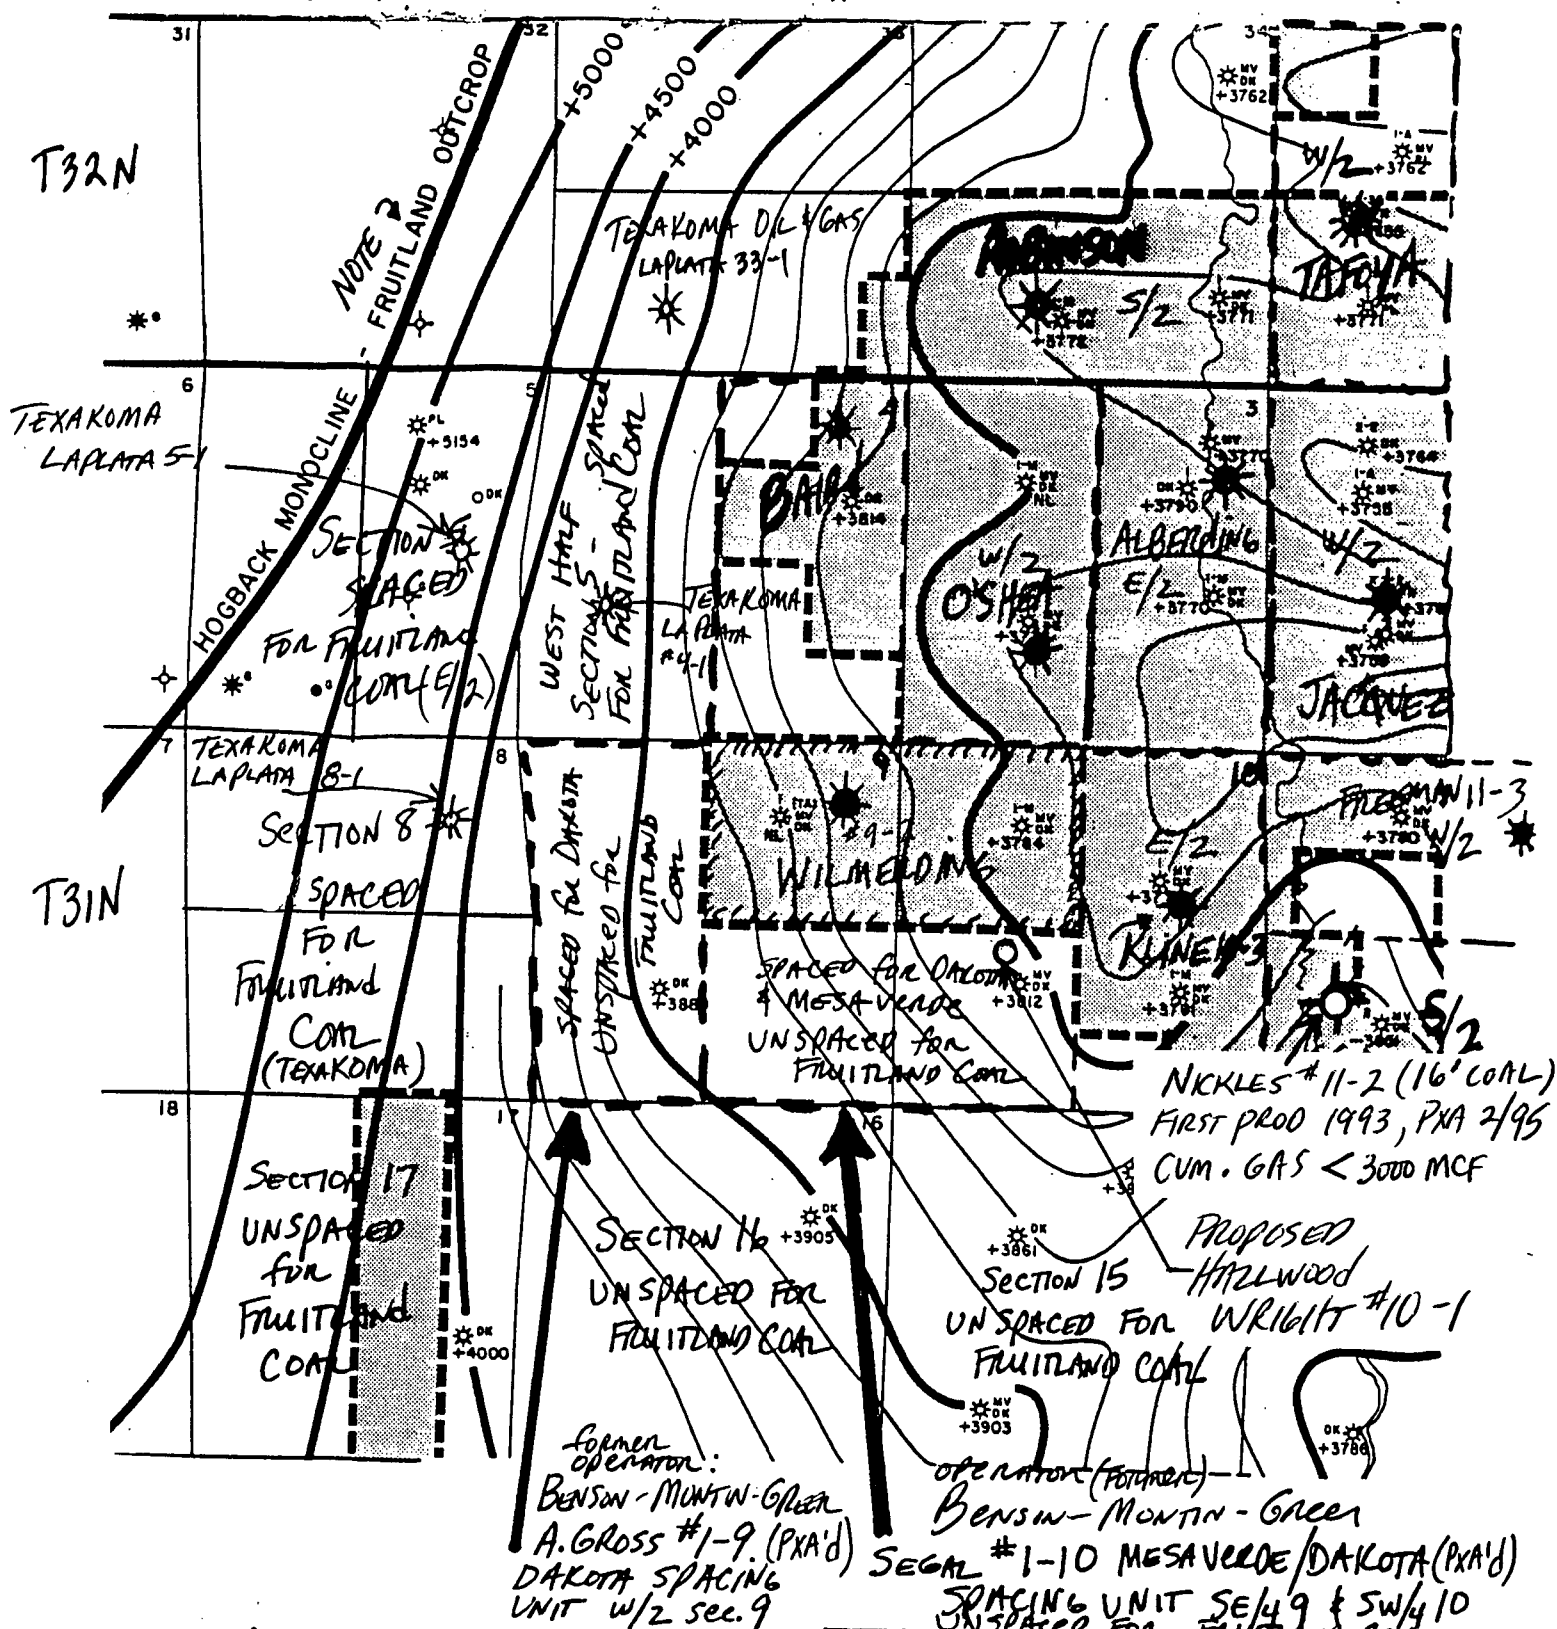 31
32
33
34
T32N
NOTE 2
FRUITLAND OUTCROP
HOGBACK MONOCLINE
+5000
+4500
+4000
MV
DK
+3762
W/2
1-A
MV
+3762
TEXAKOMA OIL & GAS
LAPLATA 33-1
ROBINSON
S/2
+3771
+3772
TAFOYA
+3771
6
5
4
3
TEXAKOMA
LAPLATA 5-1
PL
+5154
DK
DK
SECTION
SPACED
FOR FRUITLAND
COAL (E/2)
WEST HALF
SECTION 5 - SPACED
FOR FRUITLAND COAL
TEXAKOMA
LAPLATA
#4-1
BAIRD
DK
+3814
I-M
MV
DK
NL
W/2
O'SHEA
MV
+3770
DK
+3790
ALBERDING
E/2
I-M
MV
DK
+3770
DK
+3764
I-A
MV
+3758
W/2
JACQUEZ
7
8
9
10
TEXAKOMA
LAPLATA 8-1
SECTION 8
SPACED
FOR
FRUITLAND
COAL
(TEXAKOMA)
T31N
SPACED for DAKOTA
UNSPACED for
FRUITLAND
COAL
(TA)
MV
DK
NL
#9-2
WILMERDING
I-M
MV
DK
+3784
E/2
MV
DK
KLINE
FREEMAN 11-3
MV
DK
+3780
N/2
DK
SPACED for DAKOTA
& MESA-VERDE
UNSPACED for
FRUITLAND COAL
MV
DK
+3812
I-M
MV
DK
+3781
MV
DK
S/2
NICKLES #11-2 (16' COAL)
FIRST PROD 1993, PXA 2/95
CUM. GAS < 3000 MCF
18
17
16
SECTION 17
UNSPACED
for
FRUITLAND
COAL
DK
+4000
SECTION 16
UNSPACED FOR
FRUITLAND COAL
DK
+3905
DK
+3861
SECTION 15
UNSPACED FOR
FRUITLAND COAL
PROPOSED
HALLWOOD
WRIGHT #10-1
MV
DK
+3903
DK
+3786
former
operator:
BENSON-MONTIN-GREER
A. GROSS #1-9 (PXA'd)
DAKOTA SPACING
UNIT W/2 sec. 9
OPERATOR (FORMER)
BENSON-MONTIN-GREER
SEGAL #1-10 MESAVERDE/DAKOTA (PXA'd)
SPACING UNIT SE/4 9 & SW/4 10
UNSPACED FOR